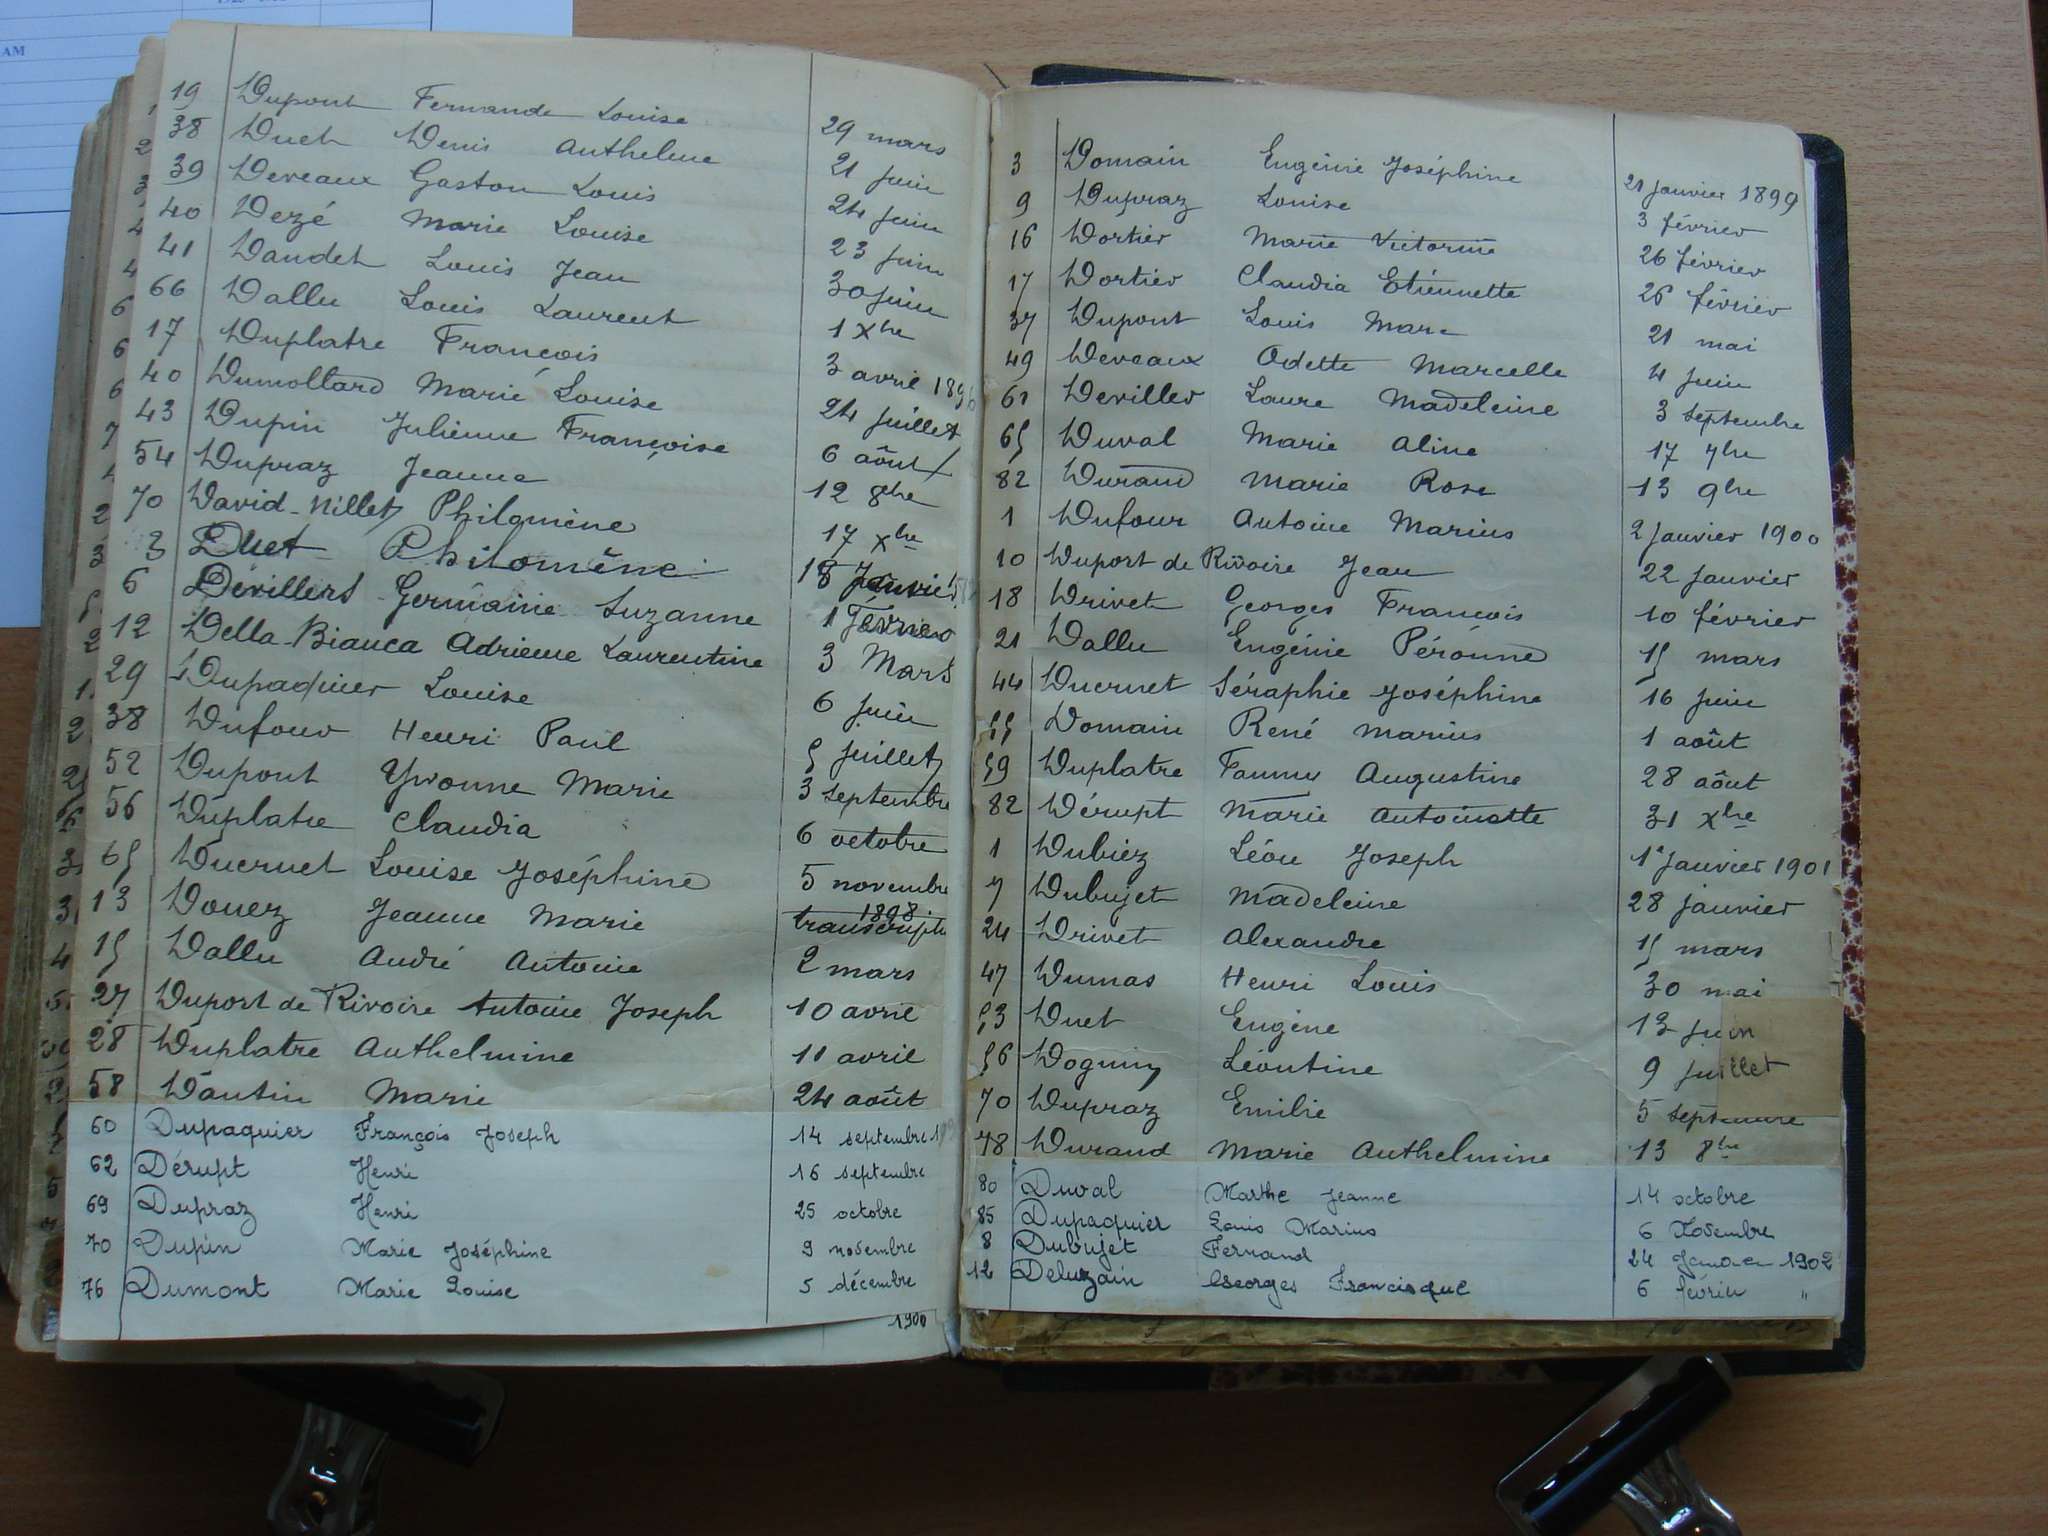 AM
19 Dupont Fernande Louise 29 mars
38 Duet Denis Anthelme 21 juin
39 Deveaux Gaston Louis 24 juin
40 Dezé Marie Louise 23 juin
41 Daudet Louis Jean 30 juin
66 Dallu Louis Laurent 1 Xbre
17 Duplatre François 3 avril 1896
40 Dumollard Marie Louise 24 juillet
43 Dupin Julienne Françoise 6 août
54 Dupraz Jeanne 12 8bre
70 David-Nillet Philomène 17 Xbre
3 Duet Philomène 18 Janvier
6 Dévillers Germaine Suzanne 1 Février
12 Della-Bianca Adrienne Laurentine 3 Mars
29 Dupaquier Louise 6 juin
38 Dufour Henri Paul 5 juillet
52 Dupont Yvonne Marie 3 septembre
56 Duplatre Claudia 6 octobre
65 Ducruet Louise Joséphine 5 novembre
13 Douez Jeanne Marie 1898
15 Dallu André Antoine 2 mars
27 Duport de Rivoire Antoine Joseph 10 avril
28 Duplatre Anthelmine 11 avril
58 Dantin Marie 24 août
60 Dupaquier François Joseph 14 septembre
62 Dérupt Henri 16 septembre
69 Dupraz Henri 25 octobre
70 Dupin Marie Joséphine 9 novembre
76 Dumont Marie Louise 5 décembre
1900
3 Domain Eugénie Joséphine 21 janvier 1899
9 Dupraz Louise 3 février
16 Dortier Marie Victorine 26 février
17 Dortier Claudia Etiennette 26 février
37 Dupont Louis Marc 21 mai
49 Deveaux Odette Marcelle 4 juin
61 Deviller Laure Madeleine 3 septembre
65 Duval Marie Aline 17 7bre
82 Durand Marie Rose 13 9bre
1 Dufour Antoine Marius 2 Janvier 1900
10 Duport de Rivoire Jean 22 janvier
18 Drivet Georges François 10 février
21 Dallu Eugénie Péronne 15 mars
44 Ducruet Séraphie Joséphine 16 juin
55 Domain René Marius 1 août
59 Duplatre Fanny Augustine 28 août
82 Dérupt Marie Antoinette 31 Xbre
1 Dubiez Léon Joseph 1er Janvier 1901
7 Dubujet Madeleine 28 janvier
24 Drivet Alexandre 15 mars
47 Dumas Henri Louis 30 mai
53 Duet Eugène 13 juin
56 Doguin Léontine 9 juillet
70 Dupraz Emilie 5 septembre
78 Durand Marie Anthelmine 13 8bre
80 Duval Marthe Jeanne 14 octobre
85 Dupaquier Louis Marius 6 Novembre
8 Dubujet Fernand 24 Janvier 1902
12 Deluzain Georges Francisque 6 février "